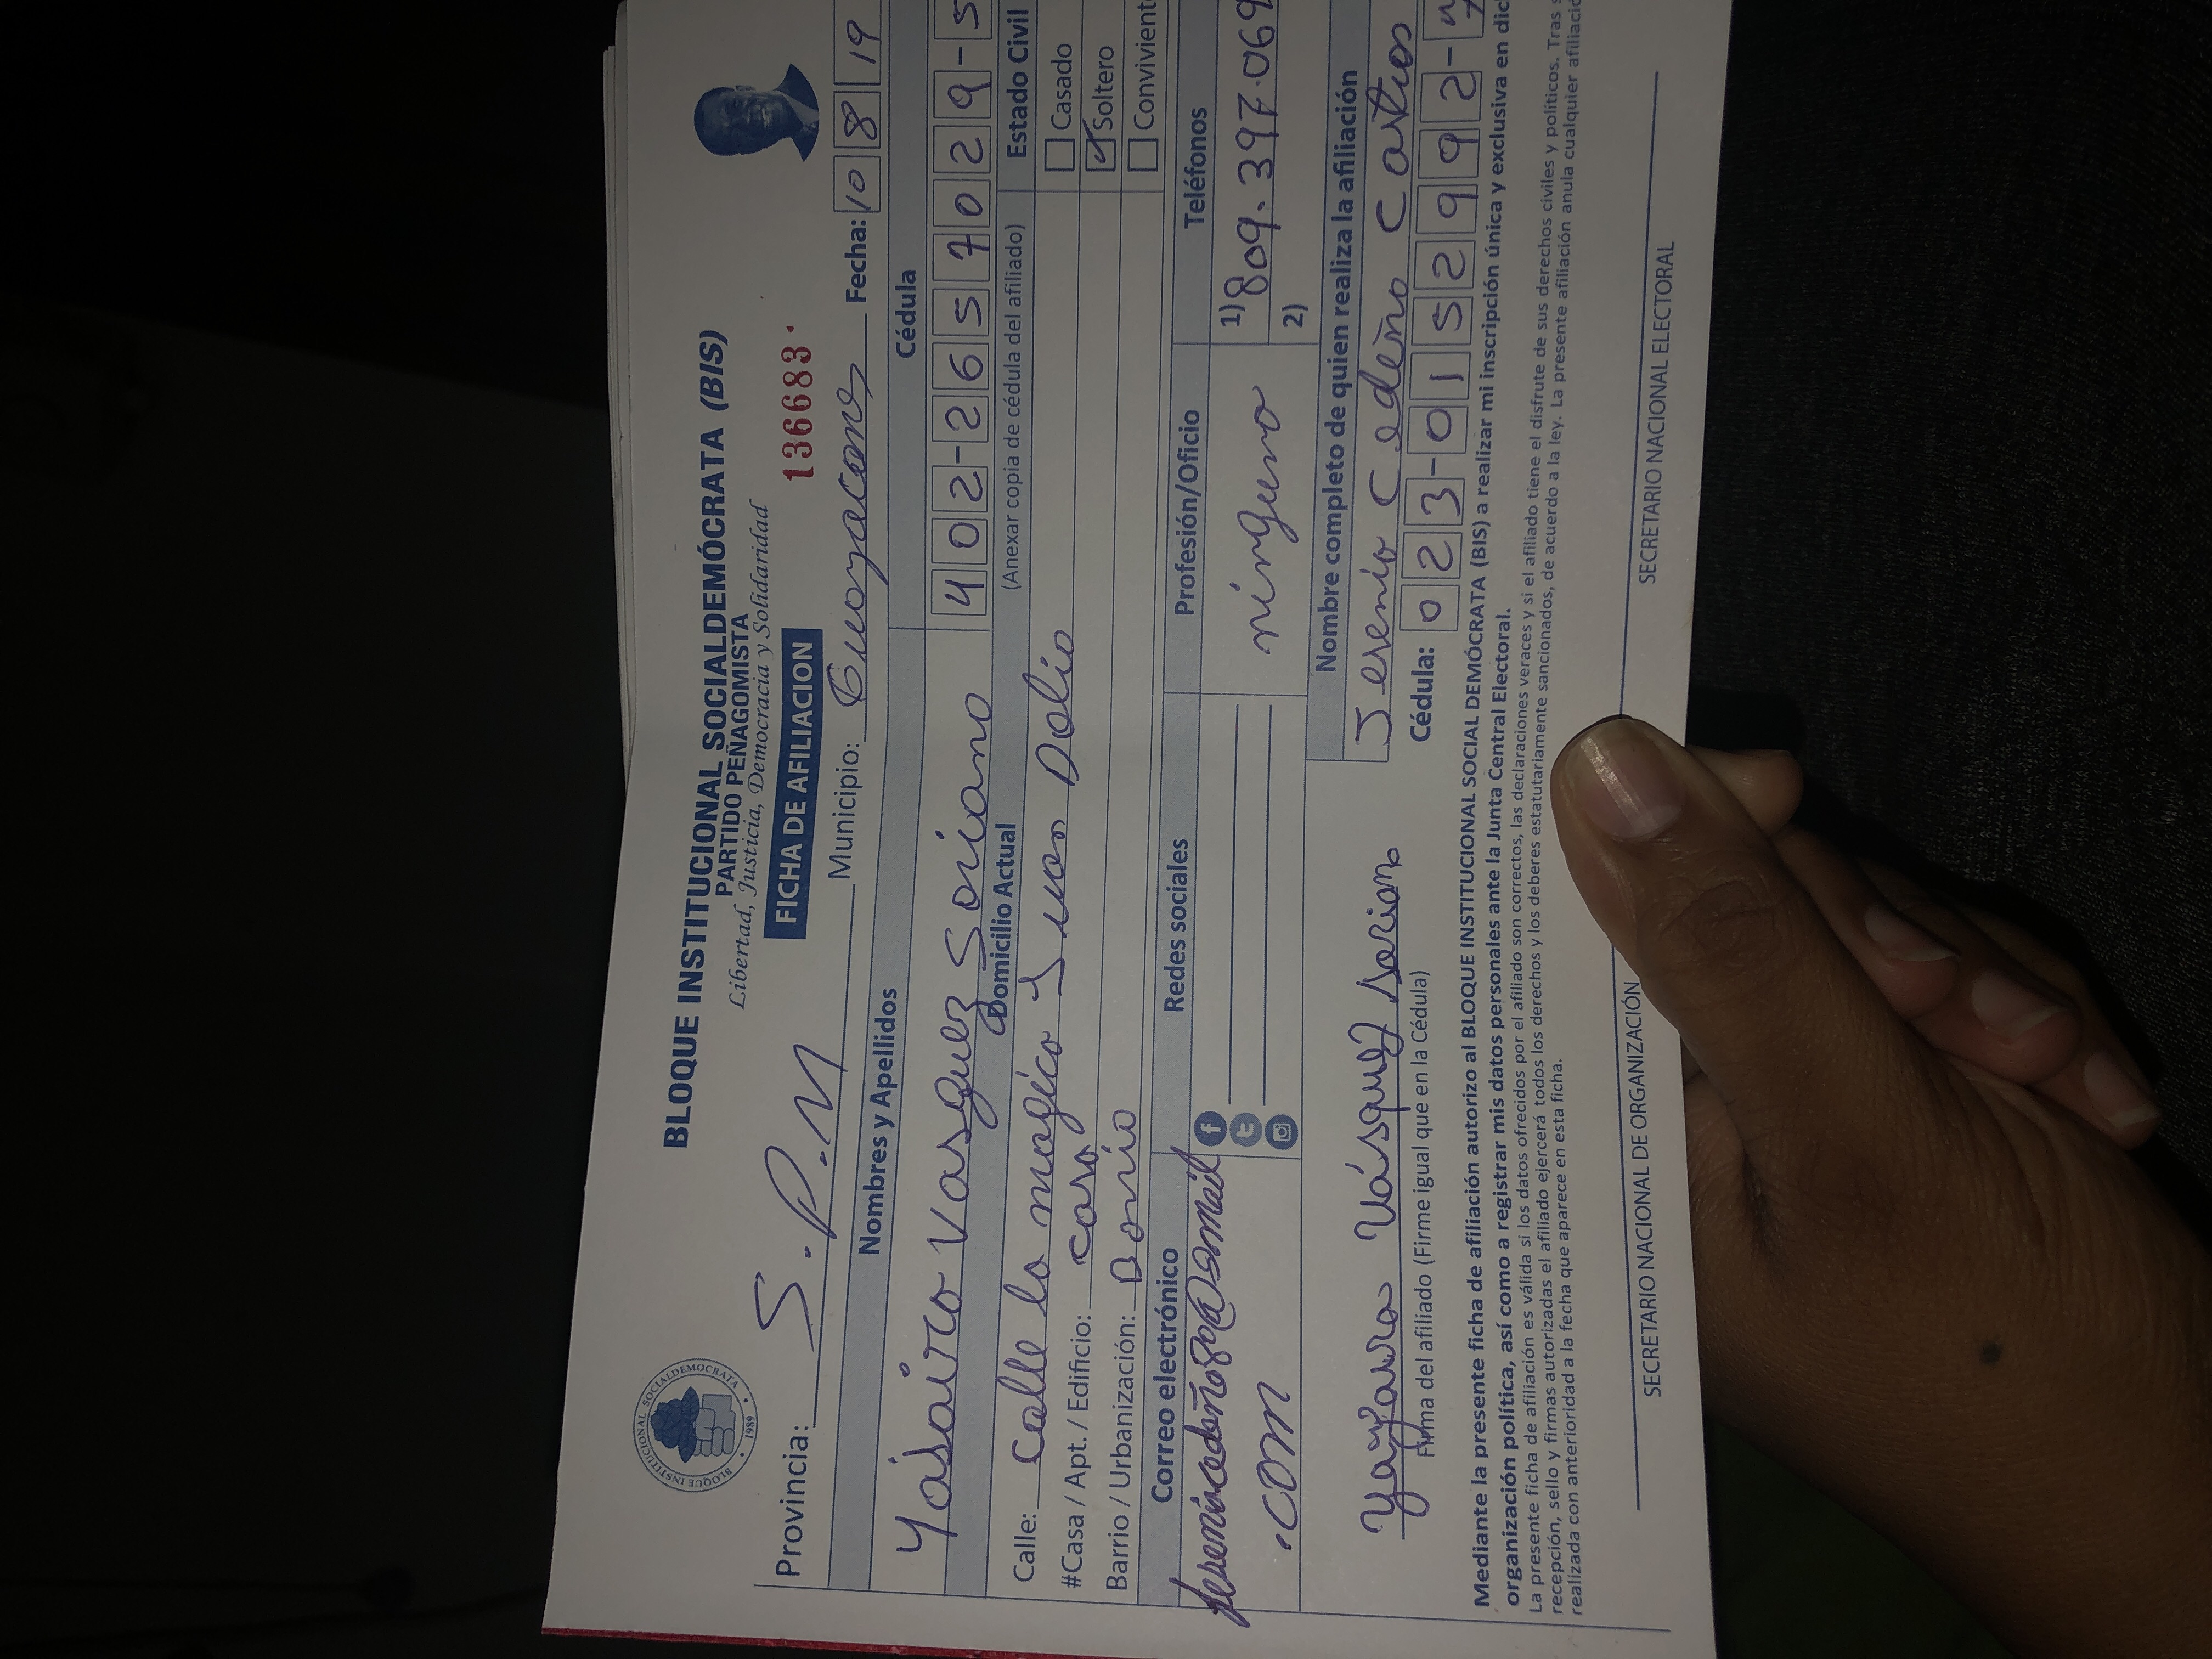 BLOQUE INSTITUCIONAL SOCIALDEMÓCRATA (BIS)
PARTIDO PEÑAGOMISTA
Libertad, Justicia, Democracia y Solidaridad
BLOQUE INSTITUCIONAL SOCIALDEMOCRATA • 1989 •
FICHA DE AFILIACION 136683
Provincia: S.P.M Municipio: Guayacanes Fecha: 10 8 19
Nombres y Apellidos Cédula
Yasairo Vasquez Soriano 402-2657029-5
Domicilio Actual (Anexar copia de cédula del afiliado) Estado Civil
Calle: Calle la magica Juan Dolio Casado
#Casa / Apt. / Edificio: casa Soltero
Barrio / Urbanización: Convivient
Correo electrónico Redes sociales Profesión/Oficio Teléfonos
@gmail
.com
ninguno
1) 809.397.069
2)
Nombre completo de quien realiza la afiliación
Jesenia Cedeño Castros
Cédula: 023-0152992-
Vásquez Sorian
Firma del afiliado (Firme igual que en la Cédula)
Mediante la presente ficha de afiliación autorizo al BLOQUE INSTITUCIONAL SOCIAL DEMÓCRATA (BIS) a realizar mi inscripción única y exclusiva en dic
organización política, así como a registrar mis datos personales ante la Junta Central Electoral.
La presente ficha de afiliación es válida si los datos ofrecidos por el afiliado son correctos, las declaraciones veraces y si el afiliado tiene el disfrute de sus derechos civiles y políticos. Tras s
recepción, sello y firmas autorizadas el afiliado ejercerá todos los derechos y los deberes estatutariamente sancionados, de acuerdo a la ley. La presente afiliación anula cualquier afiliació
realizada con anterioridad a la fecha que aparece en esta ficha.
SECRETARIO NACIONAL DE ORGANIZACIÓN SECRETARIO NACIONAL ELECTORAL